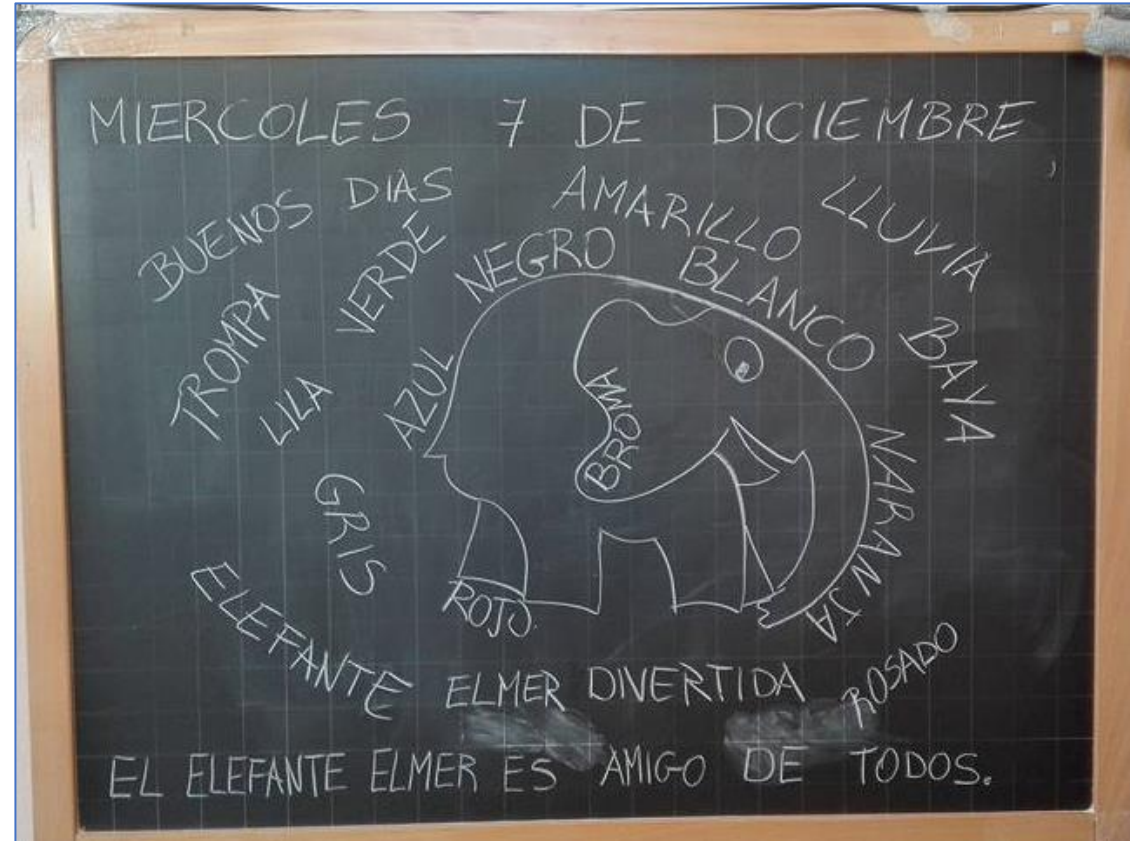 MIERCOLES 7 DE DICIEMBRE
BUENOS DIAS
AMARILLO
LLUVIA
TROMPA
VERDE
NEGRO
BLANCO
BAYA
LILA
AZUL
BROMA
NARANJA
GRIS
ROJO.
ELEFANTE ELMER DIVERTIDA ROSADO
EL ELEFANTE ELMER ES AMIGO DE TODOS.